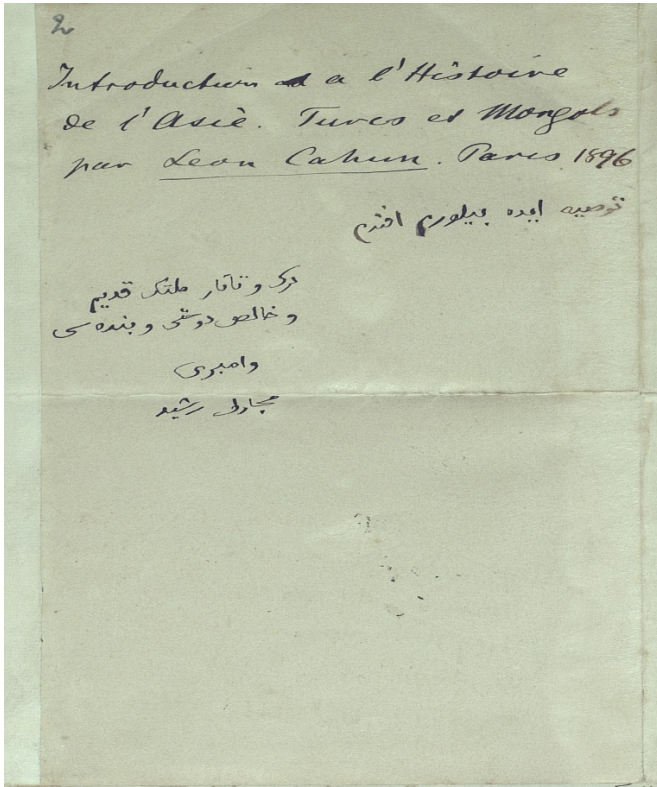 2
Introduction a l'Histoire
de l'Asie. Turcs et Mongols
par Leon Cahun. Paris 1896
توصیه ایده بیلورم افندم
ترك و تاتار ملتنك قدیم
و خالص دوستی و بنده سی
وامبری
رشید